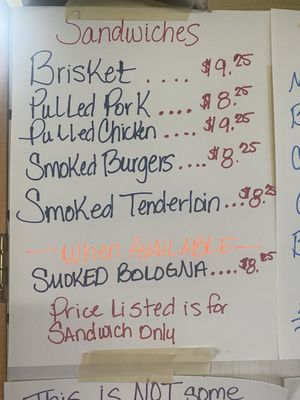 Sandwiches
Brisket .... $9.25
Pulled Pork .... $8.25
Pulled Chicken .... $9.25
Smoked Burgers... $8.25
Smoked Tenderloin... $8.25
When AVAILABLE
SMOKED BOLOGNA.... $8.25
Price Listed is for
SANdwich Only
This is NOT some